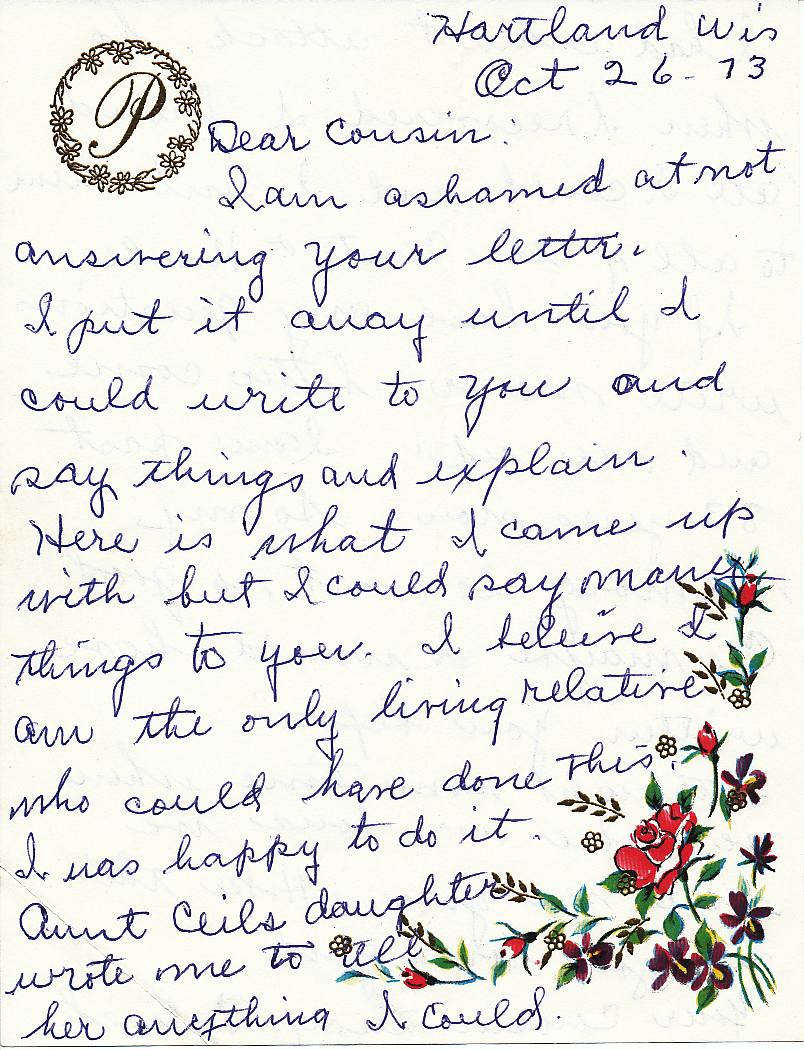 Hartland Wis
Oct 26-73
P
Dear Cousin:
I am ashamed at not
answering your letter.
I put it away until I
could write to you and
say things and explain.
Here is what I came up
with but I could say many
things to you. I beleive I
am the only living relative
who could have done this.
I was happy to do it.
Aunt Ceils daughter
wrote me to tell
her anything I could.